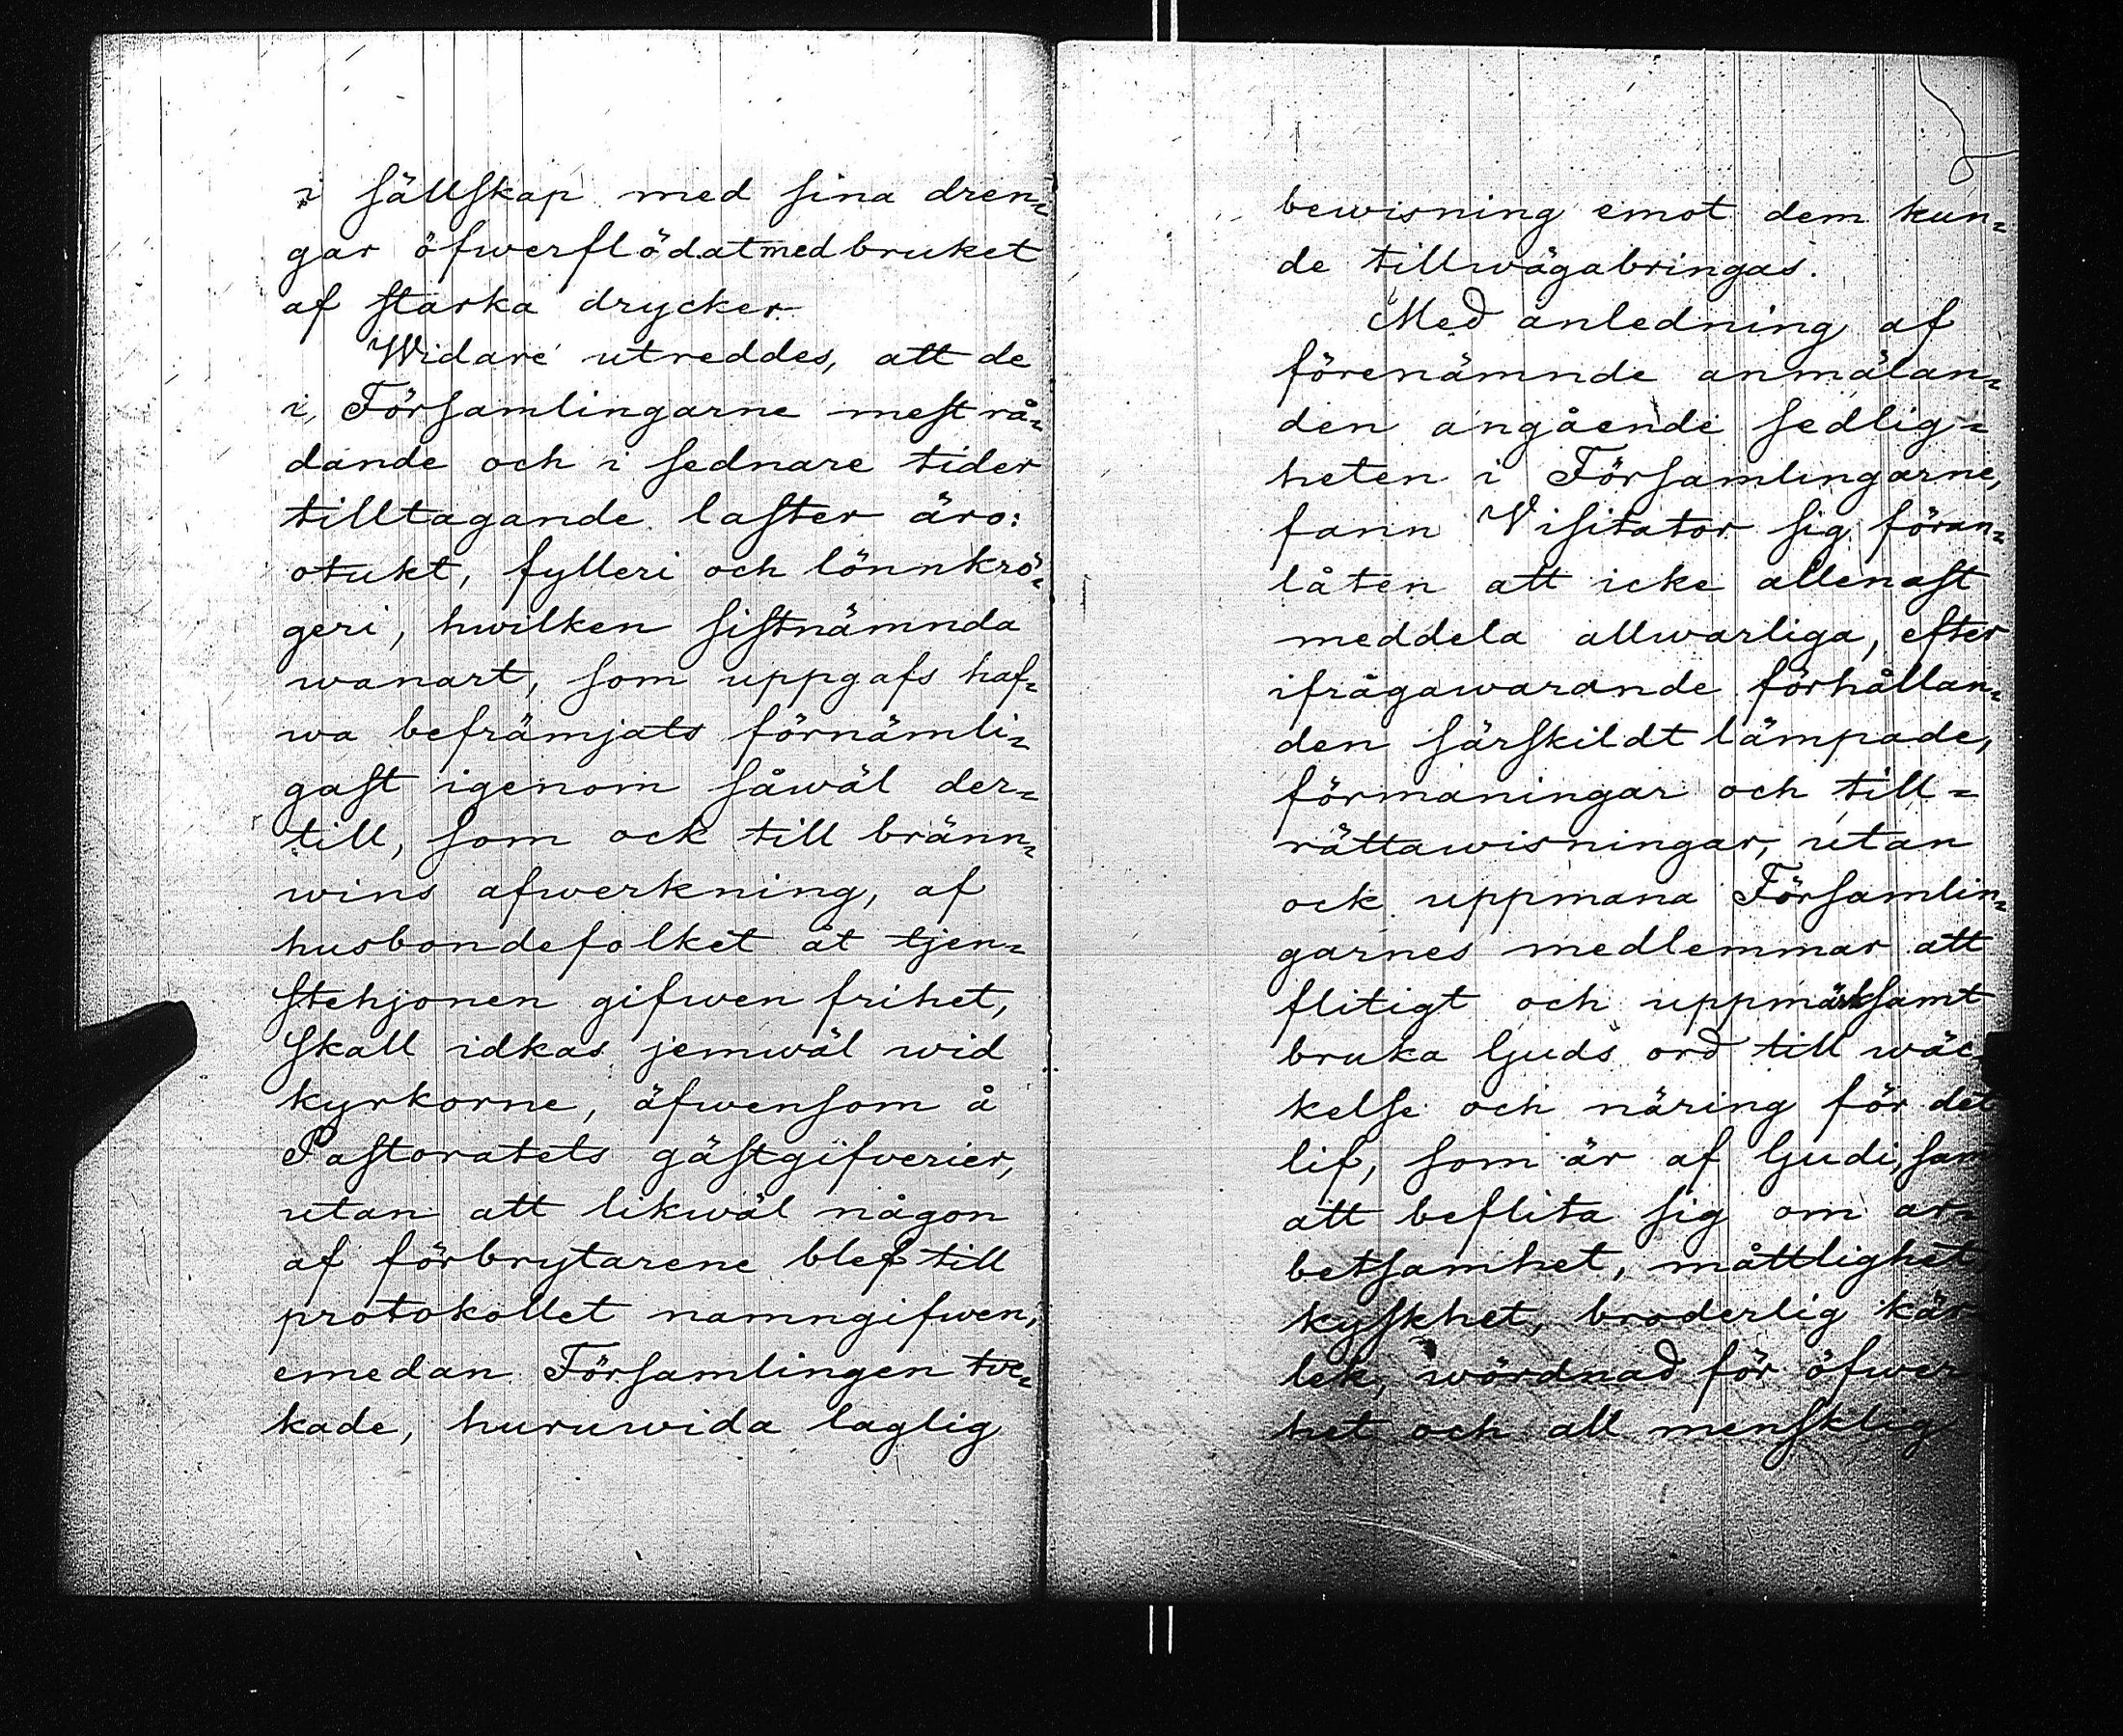 i sällskap med sina dren-
gar öfwerflödat med bruket
af starka drycker.
Widare utreddes, att de
i Församlingarne mest rå-
dande och i sednare tider
tilltagande laster äro:
otukt, fylleri och lönnkrö-
geri, hwilken sistnämnda
wanart, som uppgafs haf-
wa befrämjats förnämli-
gast igenom såwäl der-
till, som ock till bränn-
wins afwerkning, af
husbondefolket åt tjen-
stehjonen gifwen frihet,
skall idkas jemwäl wid
kyrkorne, äfwensom å
Pastoratets gästgifverier,
utan att likwäl någon
af förbrytarene blef till
protokollet namngifwen,
emedan Församlingen twe-
kade, huruwida laglig
bewisning emot dem kun-
de tillwägabringas.
Med anledning af
förenämnde anmälan-
den angående sedlig-
heten i Församlingarne,
fann Visitator sig föran-
låten att icke allenast
meddela allwarliga, efter
ifrågawarande förhållan-
den särskildt lämpade,
förmaningar och till-
rättawisningar, utan
ock uppmana Församlin-
garnes medlemmar att
flitigt och uppmärksamt
bruka Guds ord till wäc-
kelse och näring för det
lif, som är af Gudi, samt
att beflita sig om ar-
betsamhet, måttlighet,
kyskhet, broderlig kär-
lek, wördnad för öfwer-
het och all mensklig